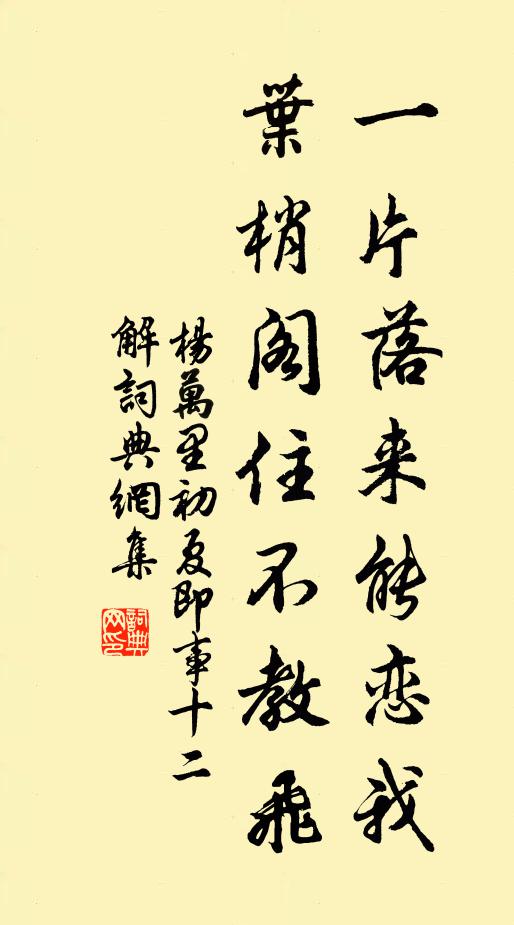 一片落来能恋我
葉梢阁住不教飛
楊萬里初夏即事十二
解詞典網集
詞典
网印